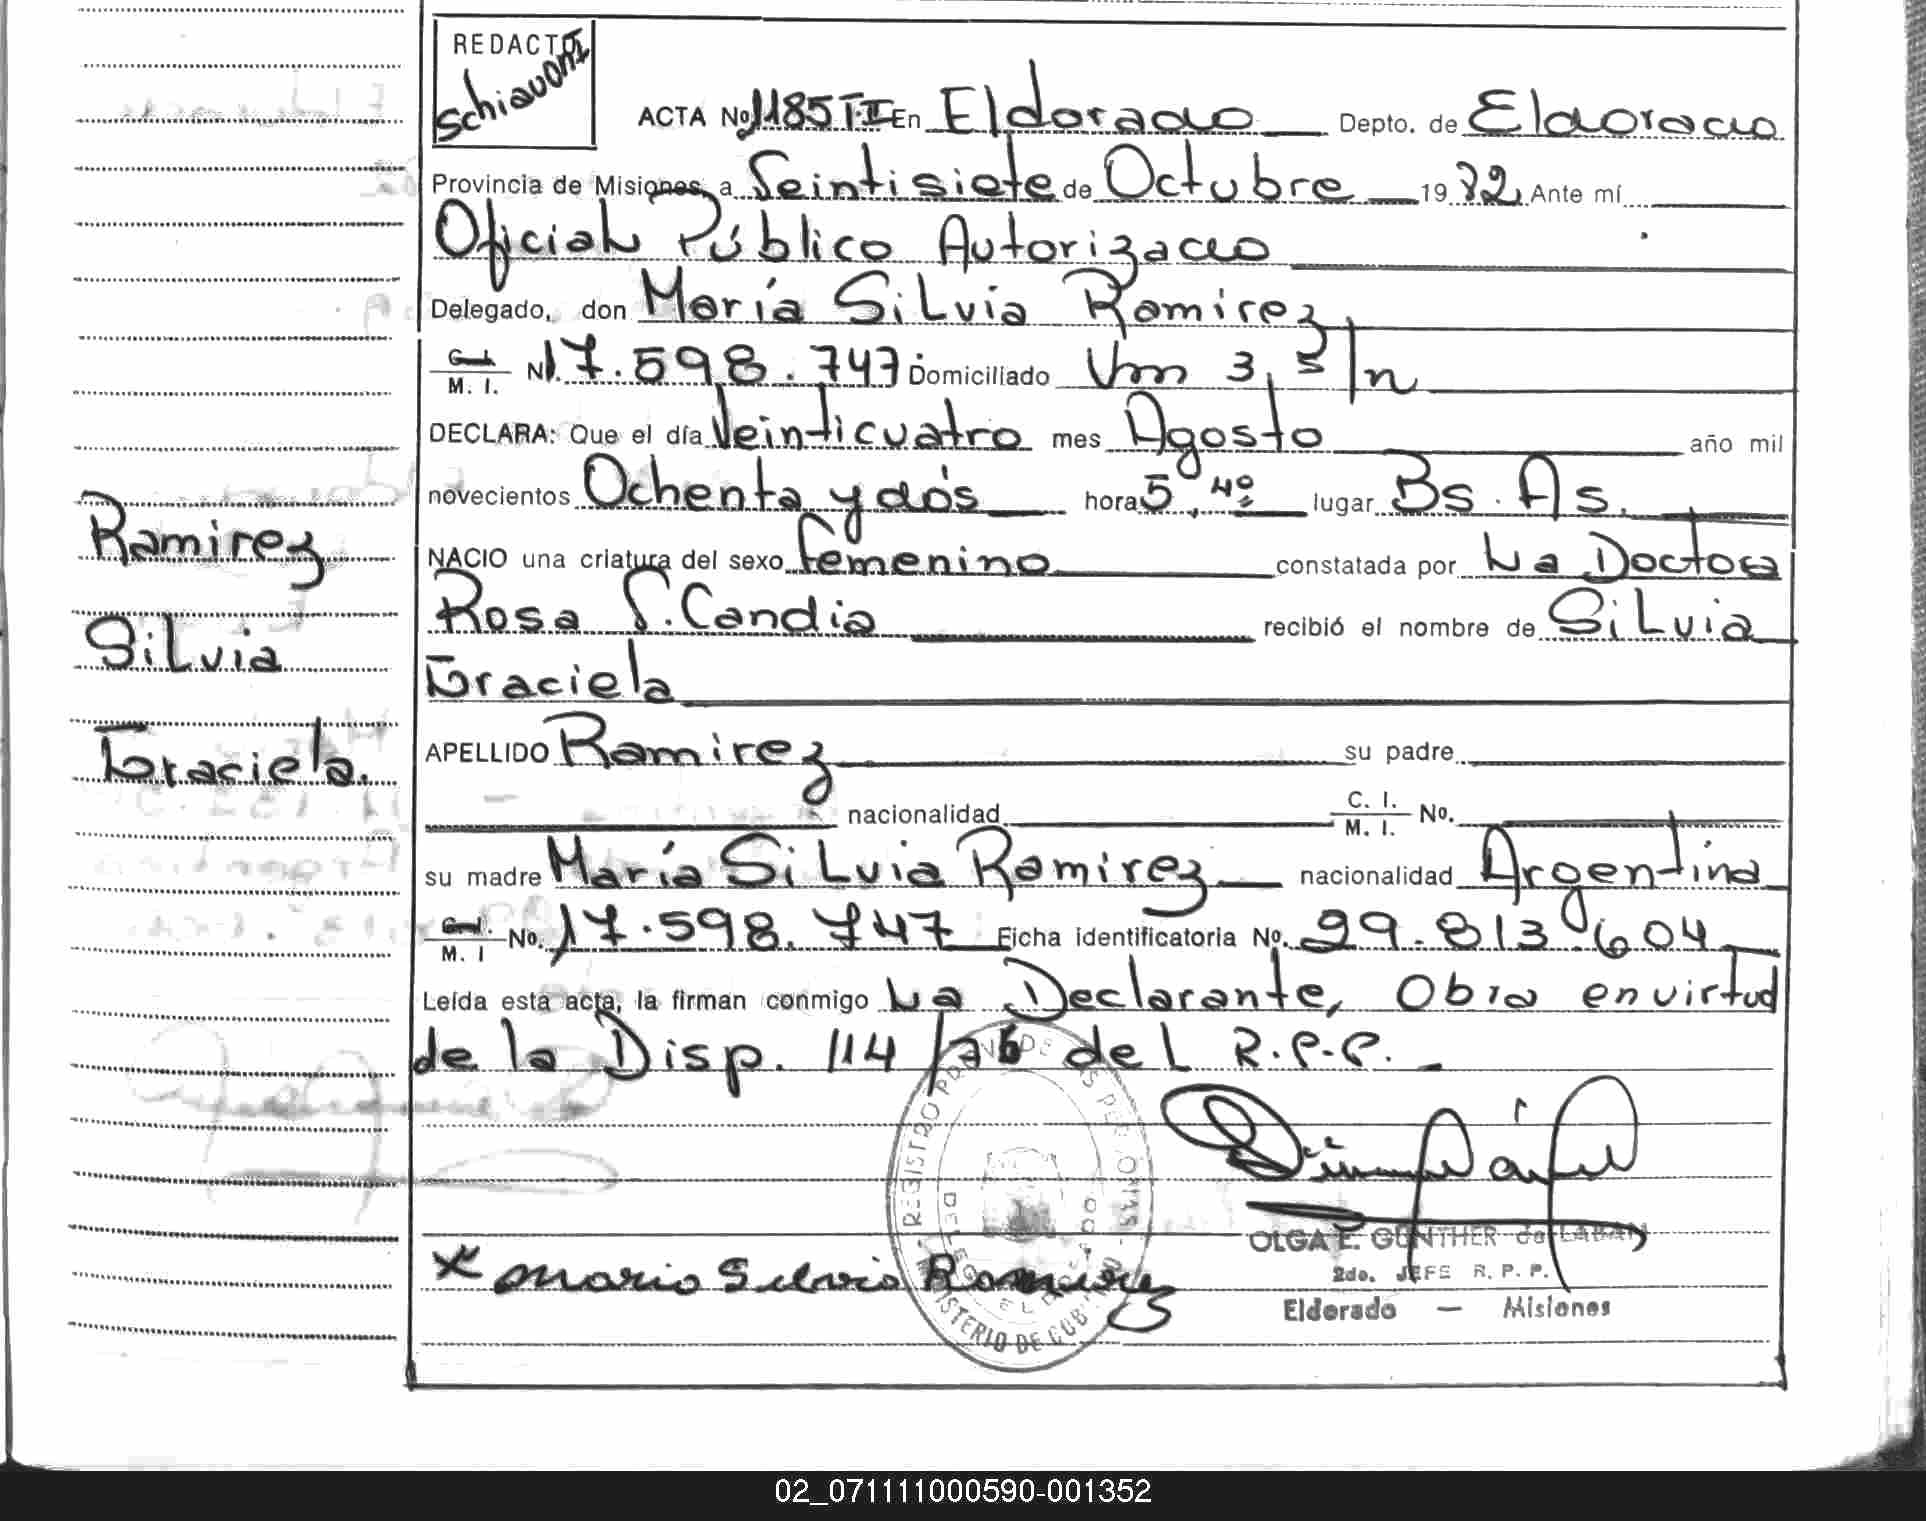 REDACTO
Schiavoni
ACTA No 1185 T.II En Eldorado Depto. de Eldorado
Provincia de Misiones, a Veintisiete de Octubre 19 82 Ante mí
Oficial Público Autorizado
Delegado, don María Silvia Ramirez
C. I. M. I. N. 17.598.747 Domiciliado Km 3, S/n
DECLARA: Que el día Veinticuatro mes Agosto año mil
novecientos Ochenta y dós hora 5,40 lugar Bs. As.
NACIO una criatura del sexo femenino constatada por La Doctora
Rosa S. Candia recibió el nombre de Silvia
Graciela
APELLIDO Ramirez su padre
nacionalidad C. I. M. I. No.
su madre María Silvia Ramirez nacionalidad Argentina
C. I. M. I No. 17.598.747 Ficha identificatoria No. 29.813.604
Leída esta acta, la firman conmigo La Declarante, Obra en virtud
de la Disp. 114/76 del R.P.P.
Ramirez
Silvia
Graciela.
REGISTRO PROV. DE LAS PERSONAS
MINISTERIO DE GOBIERNO
OLGA E. GUNTHER de LABAN
2do. JEFE R. P. P.
Eldorado — Misiones
x Maria Silvia Ramirez
02_071111000590-001352